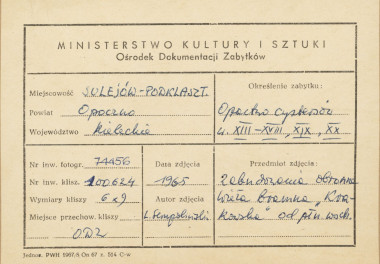 MINISTERSTWO KULTURY I SZTUKI
Ośrodek Dokumentacji Zabytków
Miejscowość SULEJÓW-PODKLASZT.
Powiat Opoczno
Województwo Kieleckie
Określenie zabytku:
Opactwo cystersów
w. XIII-XVIII, XIX, XX
Nr inw. fotogr. 74456
Nr inw. klisz. 100624
Wymiary kliszy 6x9
Miejsce przechow. kliszy
ODZ
Data zdjęcia
1965
Autor zdjęcia
Przedmiot zdjęcia:
zabudowania obronne
wieża bramna "Kra-
kowska" od płn. wsch.